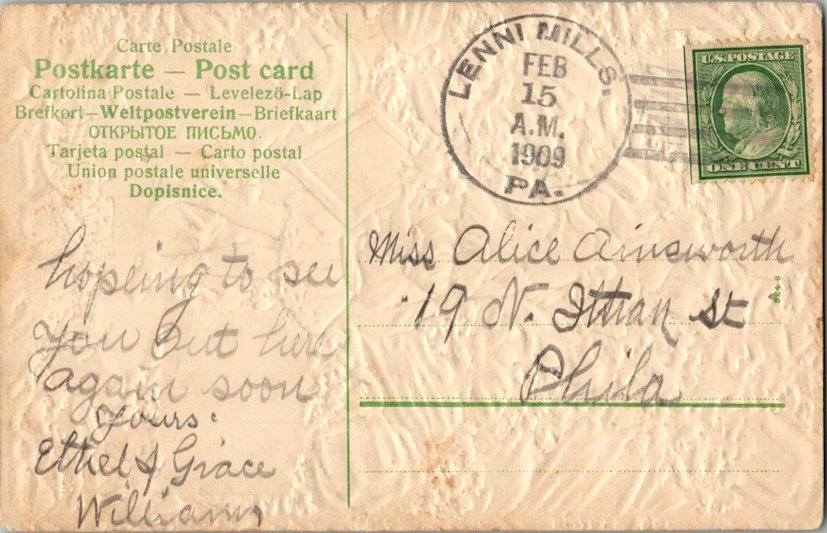 Carte Postale
Postkarte — Post card
Cartolina Postale — Levelezö-Lap
Brefkort—Weltpostverein—Briefkaart
ОТКРЫТОЕ ПИСЬМО.
Tarjeta postal — Carto postal
Union postale universelle
Dopisnice.
hopeing to see
you out here
again soon
yours:
Ethel & Grace
Williams
LENNI MILLS,
FEB
15
A.M.
1909
PA.
U.S. POSTAGE
ONE CENT
Miss Alice Ainsworth
19 N. Ithan St
Phila